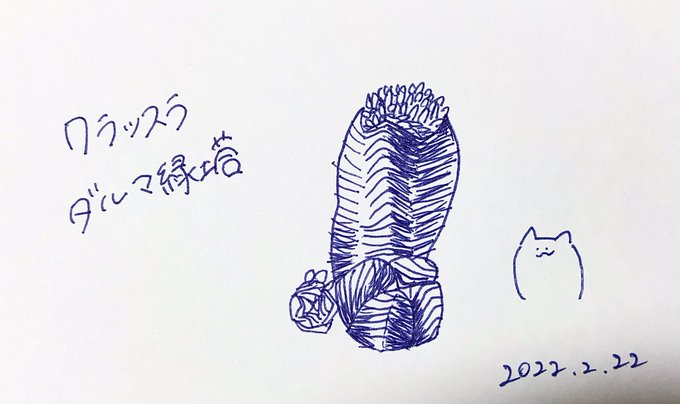 クラッスラ
ダルマ緑塔
2022.2.22